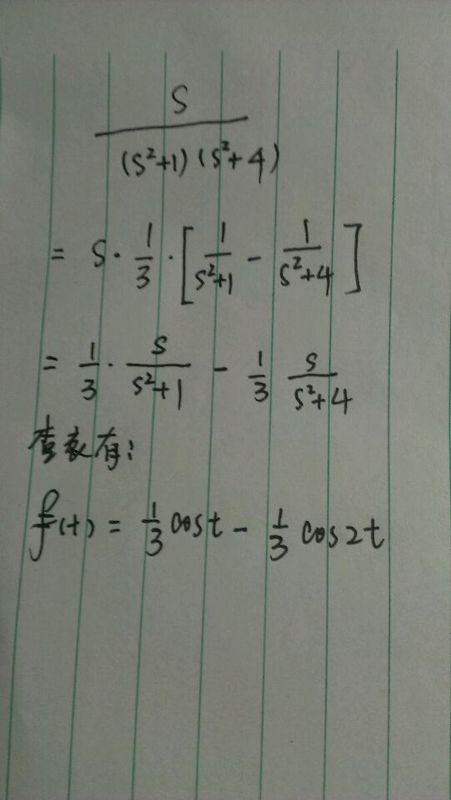 s/((s²+1)(s²+4))
= s·1/3·[1/(s²+1) - 1/(s²+4)]
= 1/3·s/(s²+1) - 1/3 s/(s²+4)
查表有:
f(t) = 1/3 cost - 1/3 cos2t